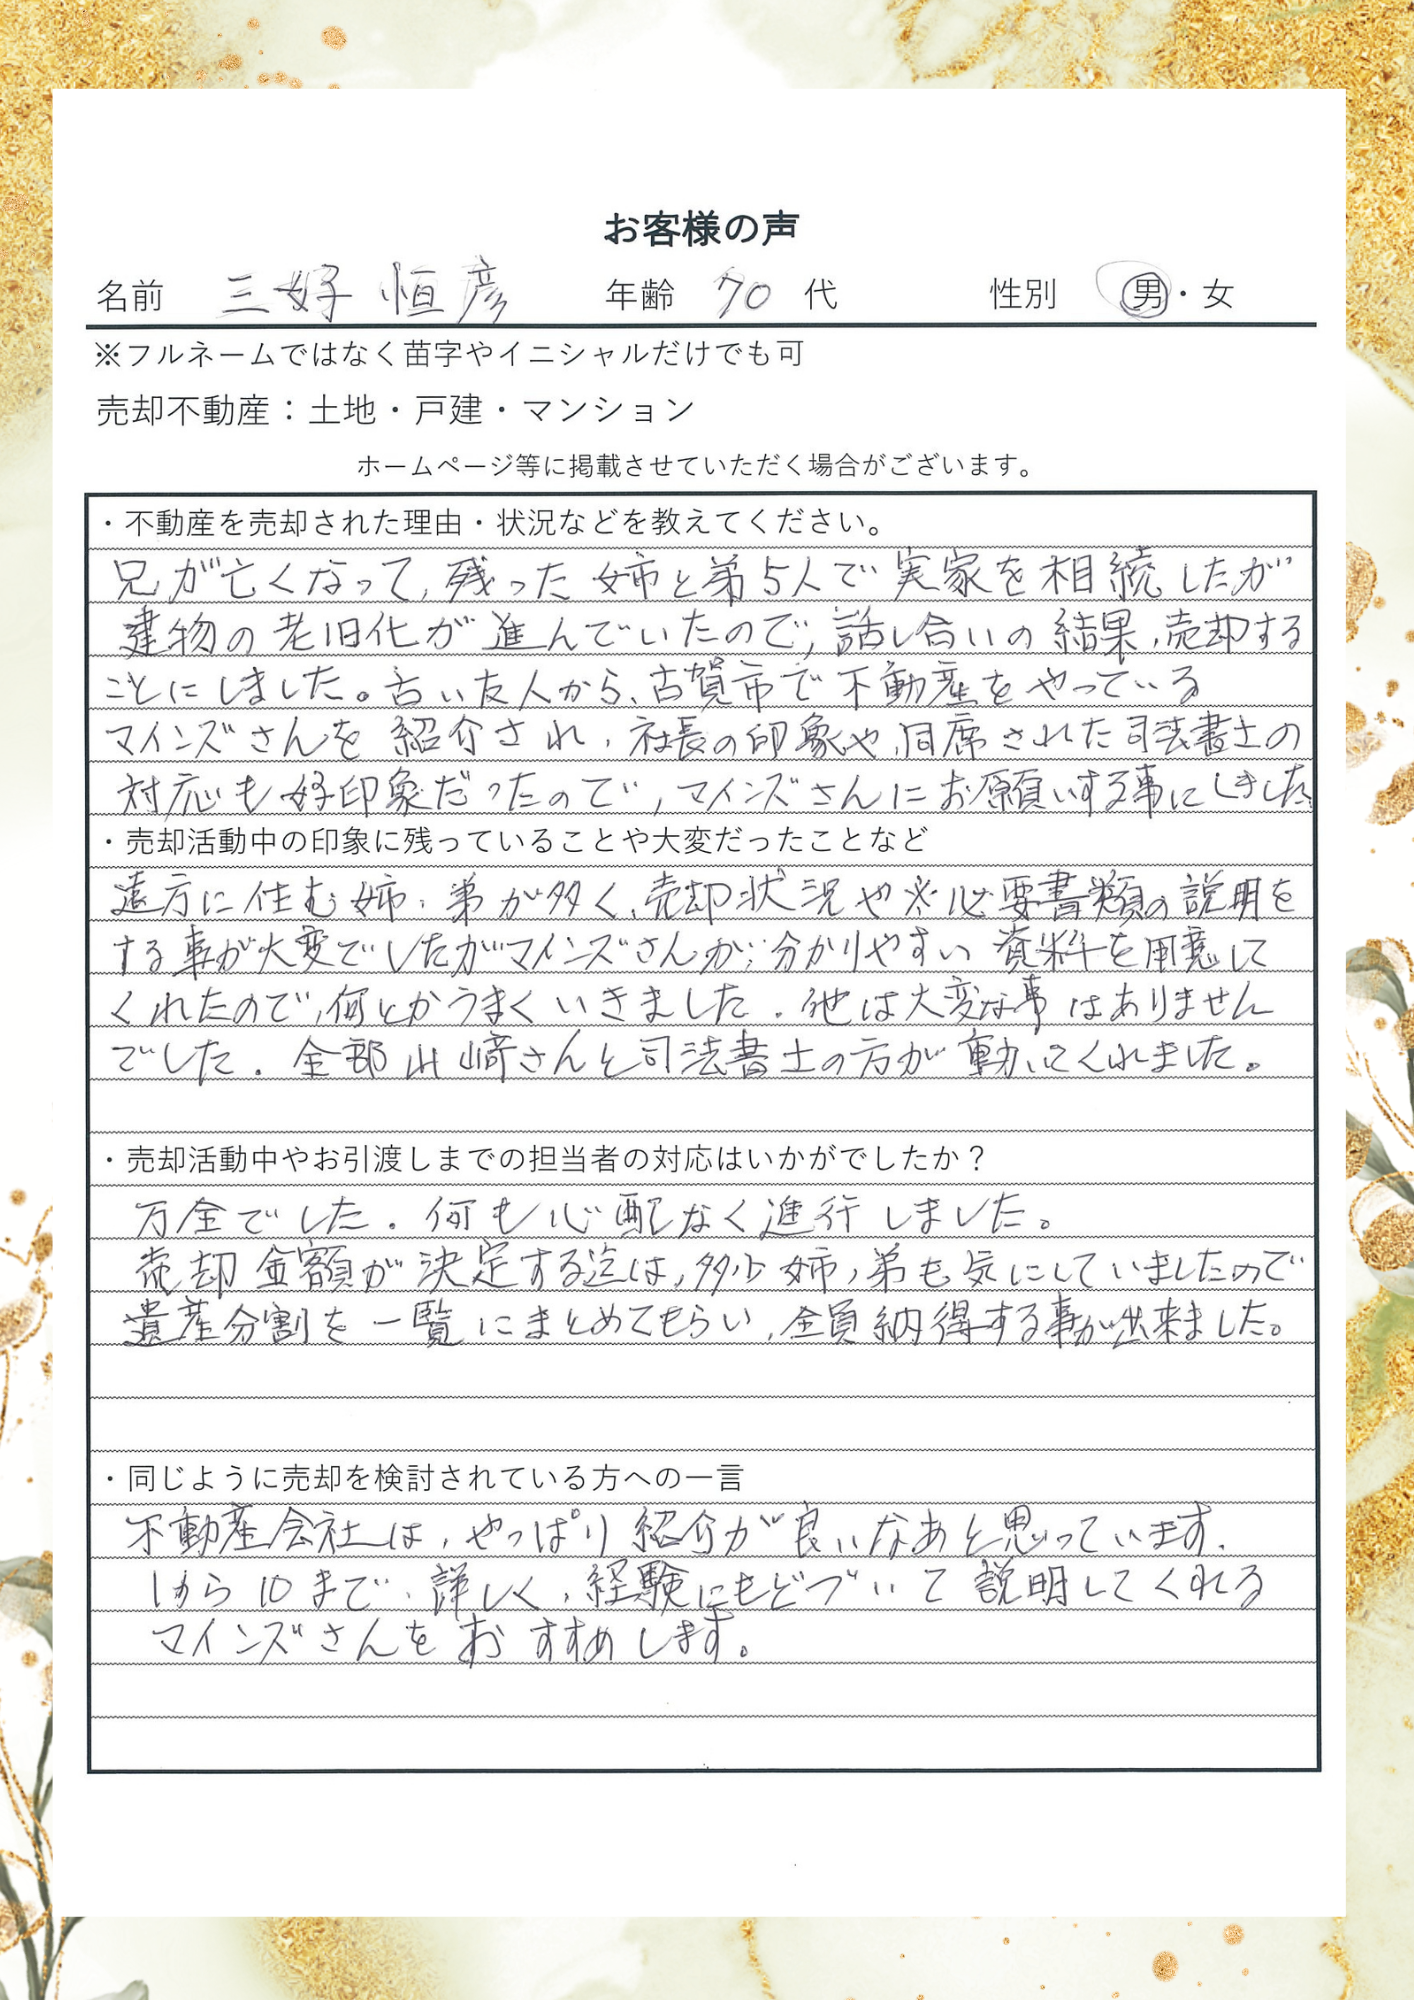 お客様の声
名前 三好 恒彦 年齢 70 代 性別 男・女
※フルネームではなく苗字やイニシャルだけでも可
売却不動産：土地・戸建・マンション
ホームページ等に掲載させていただく場合がございます。
・不動産を売却された理由・状況などを教えてください。
兄が亡くなって、残った姉と弟5人で実家を相続したが
建物の老旧化が進んでいたので、話し合いの結果、売却する
ことにしました。古い友人から、古賀市で不動産をやっている
マインズさんを紹介され、社長の印象や、同席された司法書士の
対応も好印象だったので、マインズさんにお願いする事にしました
・売却活動中の印象に残っていることや大変だったことなど
遠方に住む姉、弟が多く、売却状況や必要書類の説明を
する事が大変でしたがマインズさんが、分かりやすい資料を用意して
くれたので、何とかうまくいきました。他は大変な事はありません
でした。全部山﨑さんと司法書士の方が動いてくれました。
・売却活動中やお引渡しまでの担当者の対応はいかがでしたか？
万全でした。何も心配なく進行しました。
売却金額が決定する迄は、多少姉、弟も気にしていましたので
遺産分割を一覧にまとめてもらい、全員納得する事が出来ました。
・同じように売却を検討されている方への一言
不動産会社は、やっぱり紹介が良いなあと思っています。
1から10まで、詳しく、経験にもどづいて説明してくれる
マインズさんをおすすめします。